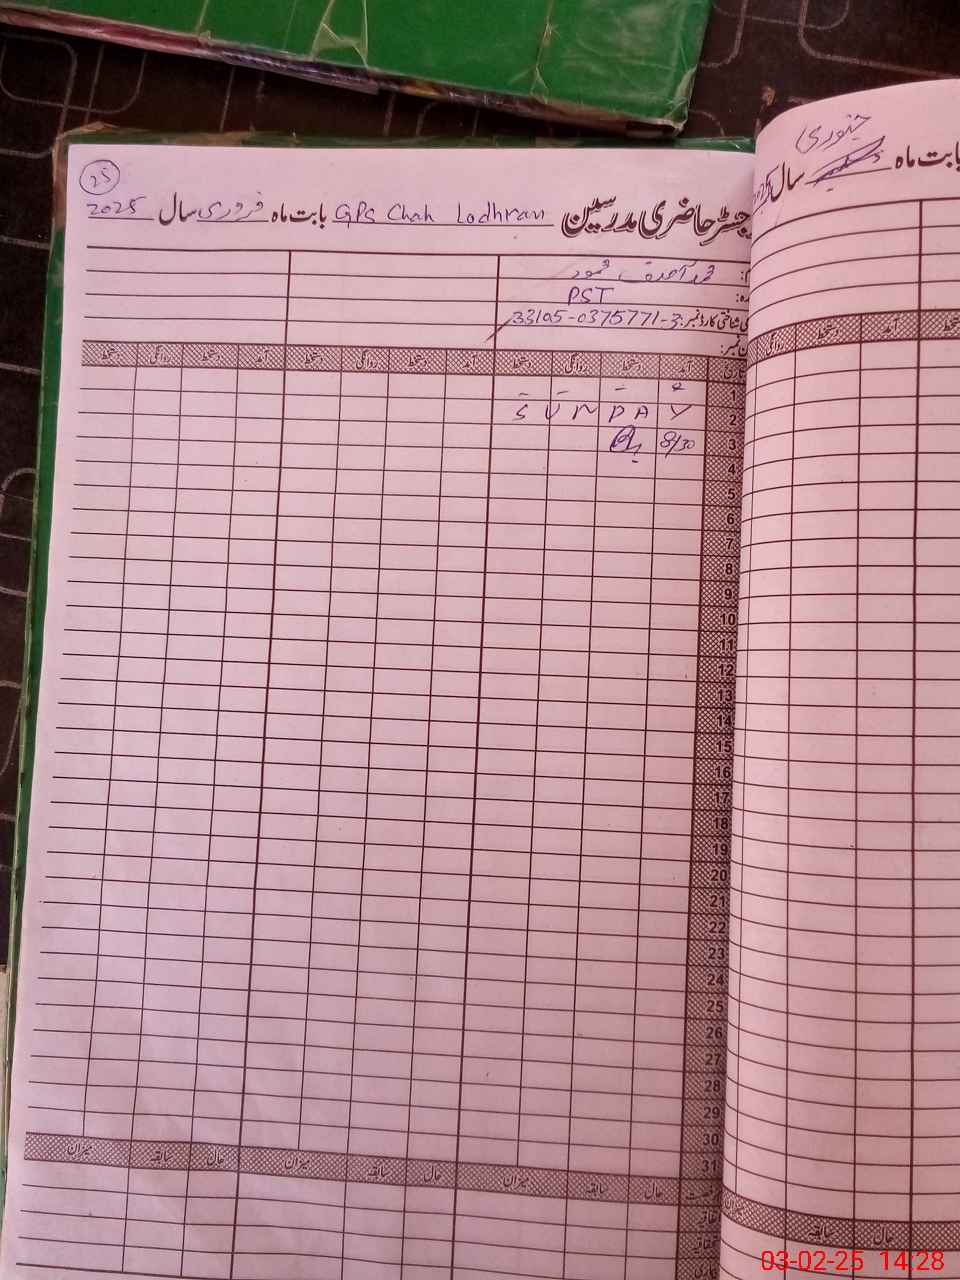 25
رجسٹر حاضری مدرسین GPS Chah Lodhran بابت ماہ فروری سال 2025
PST
شناختی کارڈ نمبر: 33105-0375771-3
آمد دستخط روانگی دستخط آمد دستخط روانگی دستخط آمد دستخط روانگی دستخط
1
2 SUNDAY
3 8/30
4
5
6
7
8
9
10
11
12
13
14
15
16
17
18
19
20
21
22
23
24
25
26
27
28
29
30
31
حال سابقہ میزان حال سابقہ میزان حال سابقہ میزان
جنوری
بابت ماہ سال 2025
آمد روانگی
میزان سابقہ حال
03-02-25 14:28